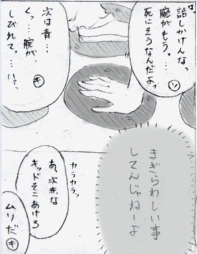 話しかけんなっ
腕がもう…
死にそうなんだよ
ソ
次は青…
くっ…腕が
しびれて。…!!っ
キ
まぎらわしい事
してんじゃねーよ
カラカラッ
あ、次赤な
キッドそこあげろ
ムリだ
キ